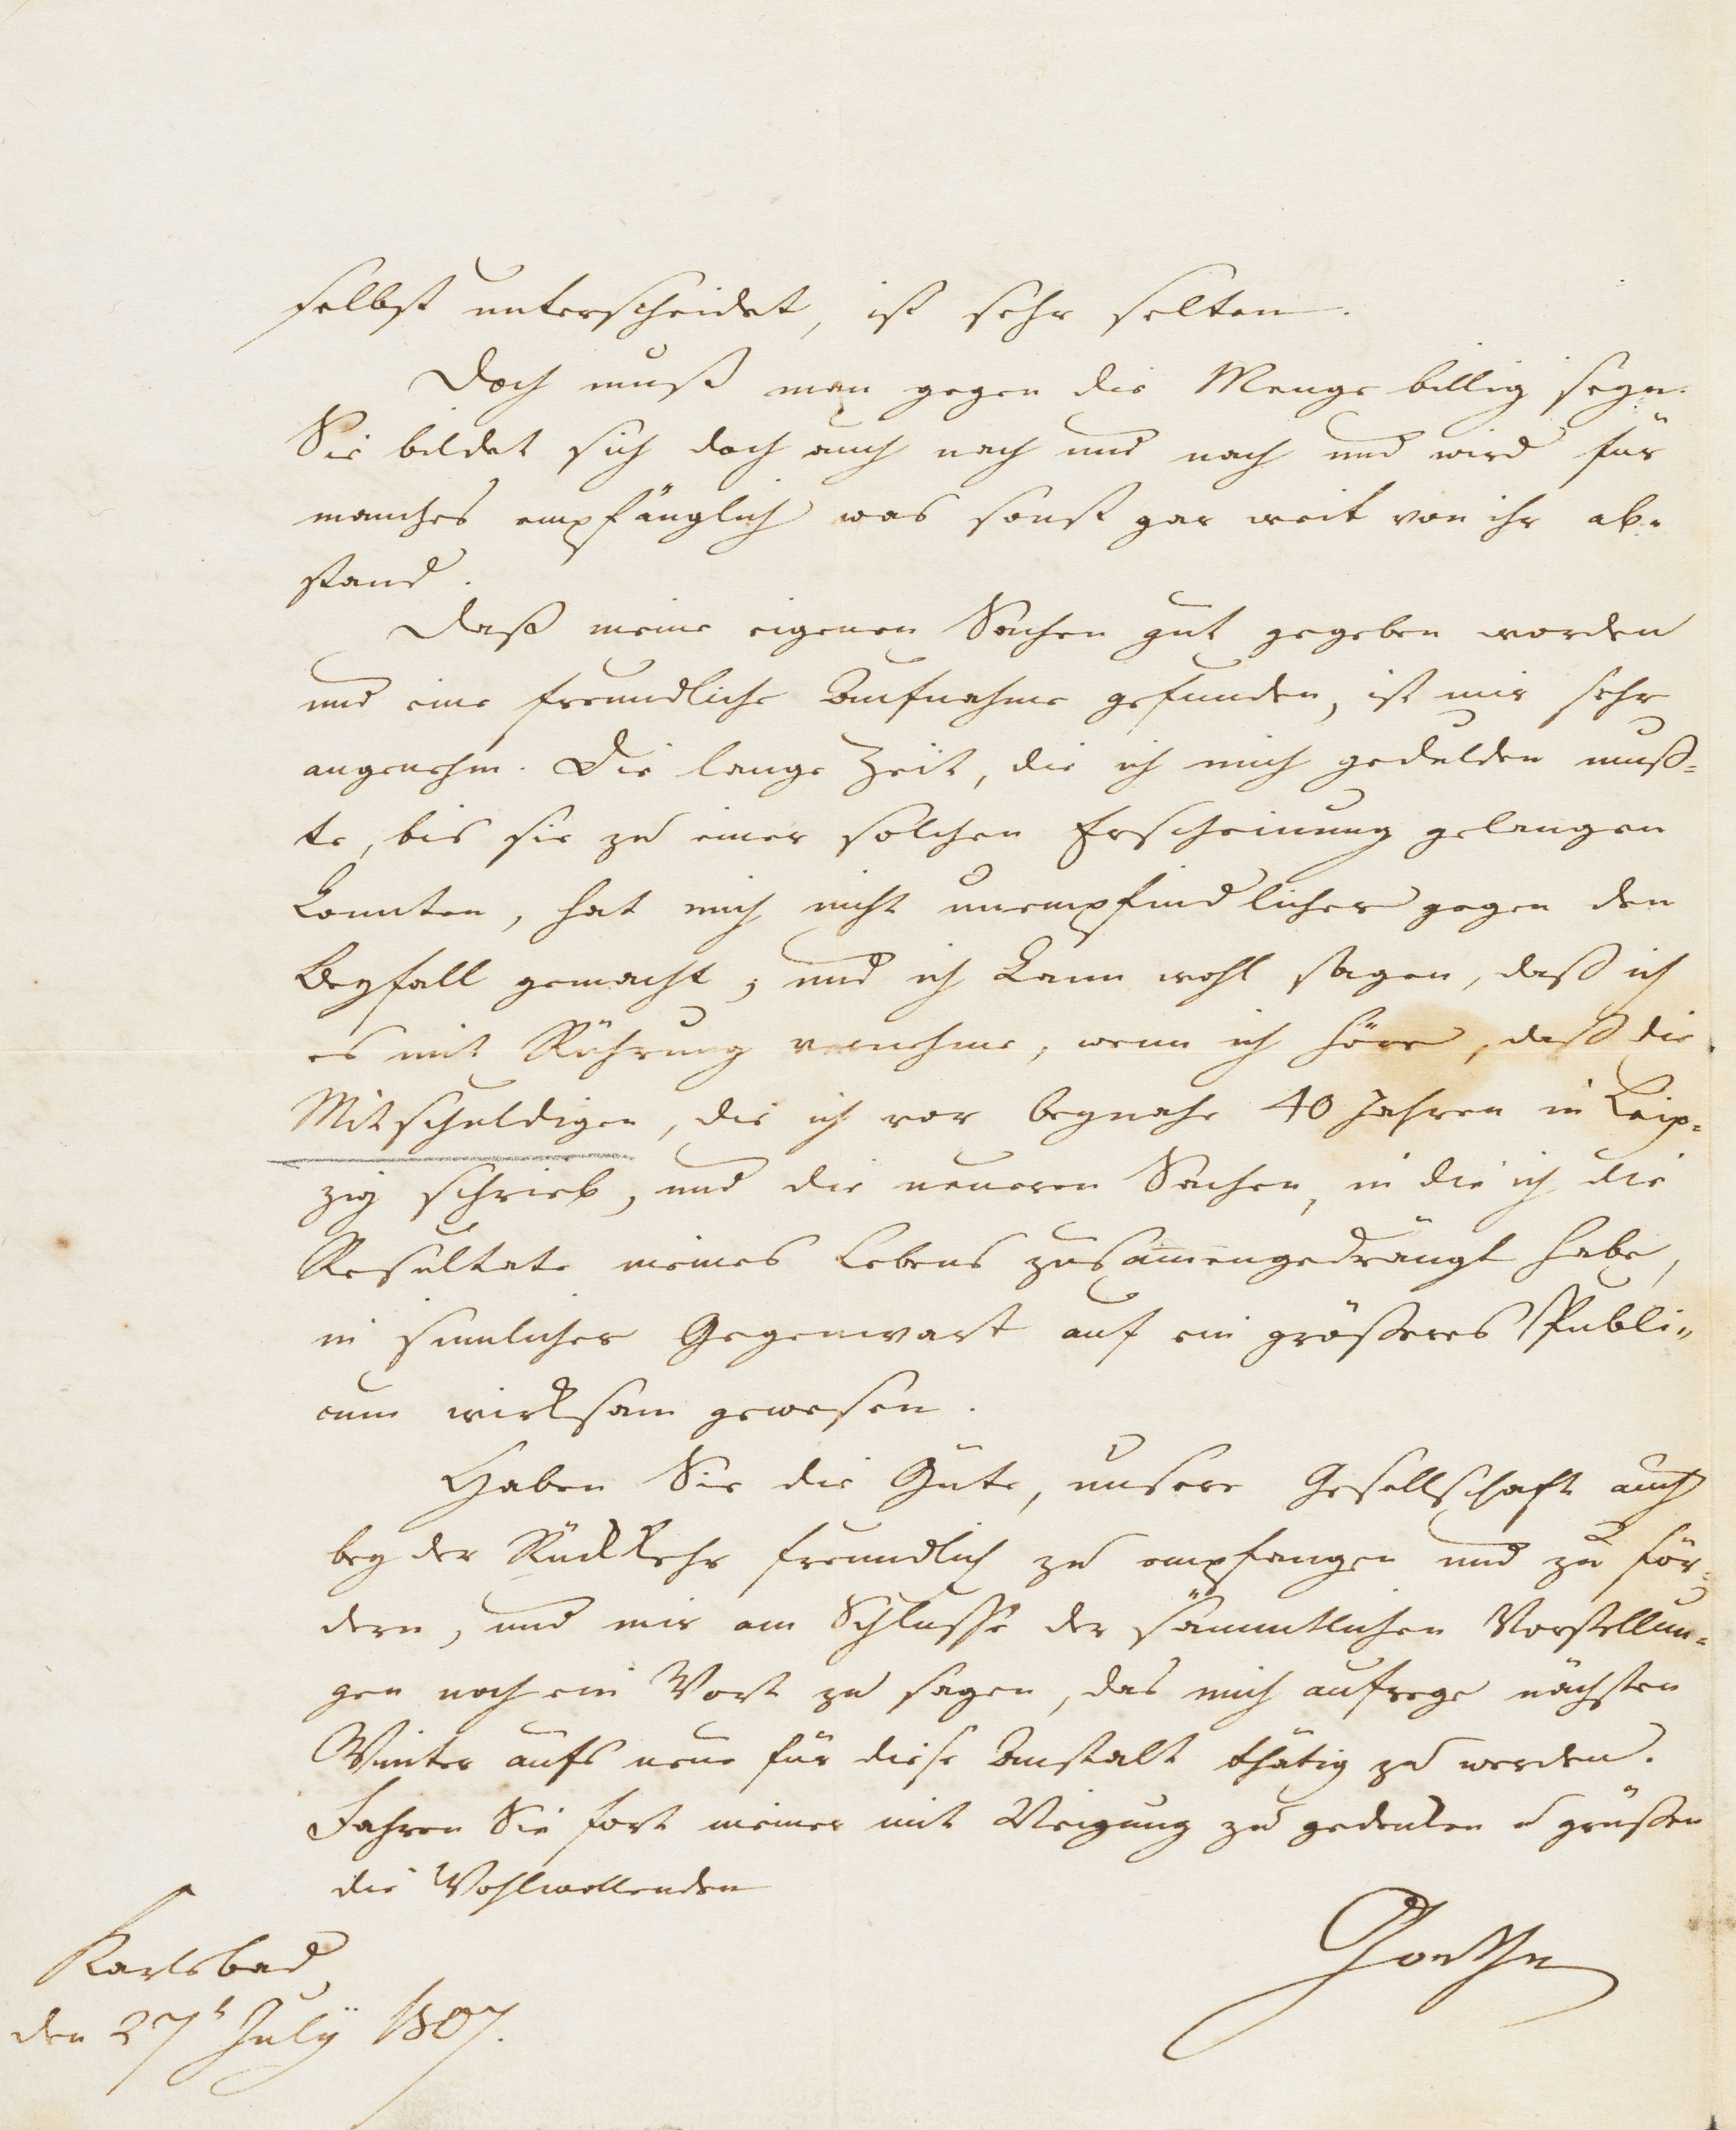 selbst unterscheidet, ist sehr selten.
Doch muß man gegen die Menge billig seyn.
Sie bildet sich doch auch nach und nach und wird für
manches empfänglich was sonst gar weit von ihr ab-
stand.
Daß meine eigenen Sachen gut gegeben worden
und eine freundliche Aufnahme gefunden, ist mir sehr
angenehm. Die lange Zeit, die ich mich gedulden muß-
te, bis sie zu einer solchen Erscheinung gelangen
konnten, hat mich nicht unempfindlicher gegen den
Beyfall gemacht; und ich kann wohl sagen, daß ich
es mit Rührung vernehme, wenn ich höre, daß die
Mitschuldigen, die ich vor beynahe 40 Jahren in Leip-
zig schrieb, und die neueren Sachen, in die ich die
Resultate meines Lebens zusam̅engedrängt habe,
in sinnlicher Gegenwart auf ein größeres Publi-
cum wirksam gewesen.
Haben Sie die Güte, unsere Gesellschaft auch
bey der Rückkehr freundlich zu empfangen und zu för-
dern, und mir am Schlusse der sämmtlichen Vorstellun-
gen noch ein Wort zu sagen, das mich aufrege nächsten
Winter aufs neue für diese Anstalt thätig zu werden.
Fahren Sie fort meiner mit Neigung zu gedenken u grüßen
die Wohlwollenden
Goethe
Karlsbad
den 27 July 1807.